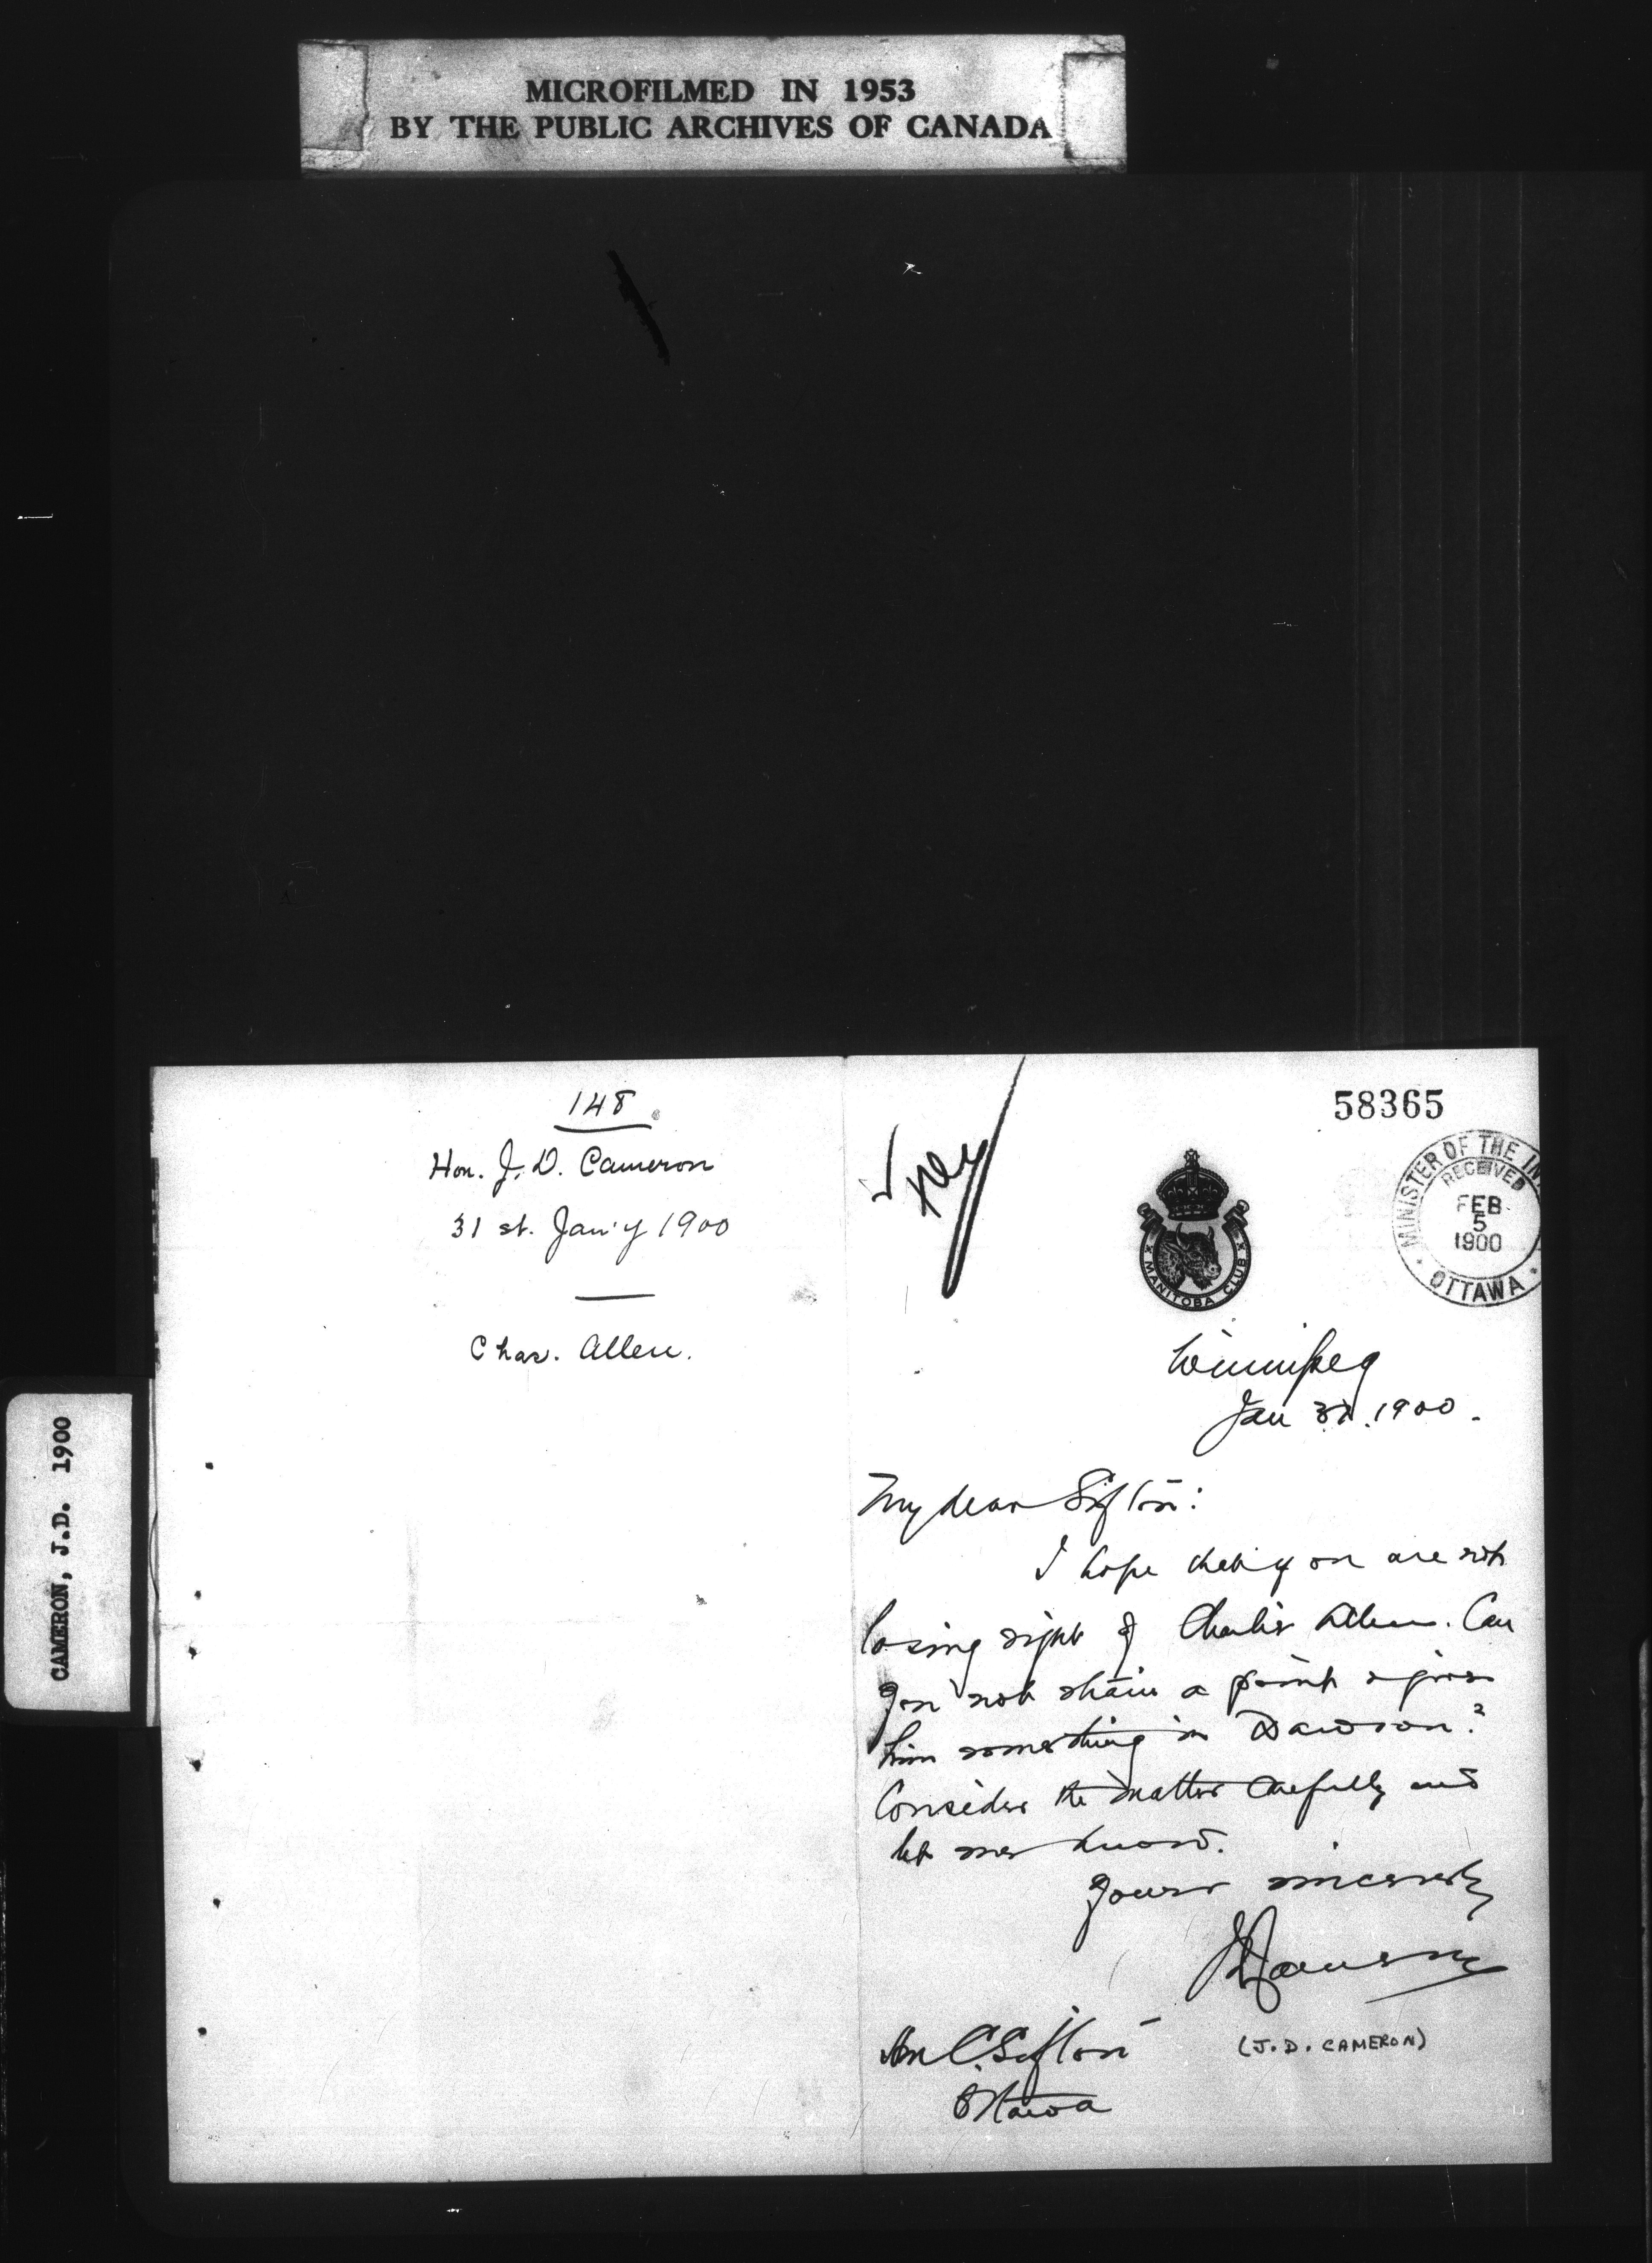 MICROFILMED IN 1953
BY THE PUBLIC ARCHIVES OF CANADA
CAMERON, J.D. 1900
148
Hon. J. D. Cameron
31 st. Jan'y 1900
Chas. Allen.
58365
MINISTER OF THE IN
RECEIVED
FEB
5
1900
OTTAWA
MANITOBA CLUB
Winnipeg
Jan 31. 1900.
My dear Sifton:
I hope that you are not
losing sight of Charlie Allen. Can
you not strain a point & give
him something in Dawson?
Consider the matter carefully and
let me know.
Yours sincerely
JD Cameron
(J.D. CAMERON)
Hon C. Sifton
Ottawa